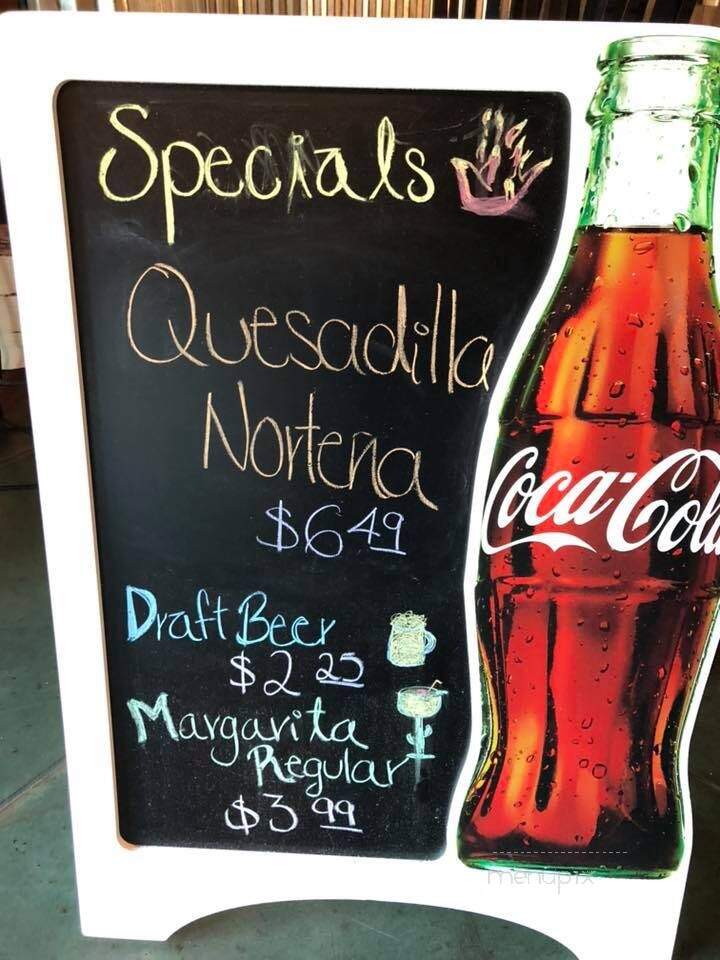 Specials
Quesadilla
Nortena
$6 49
Draft Beer
$2 25
Margarita
Regular
$3 99
Coca-Cola
menupix